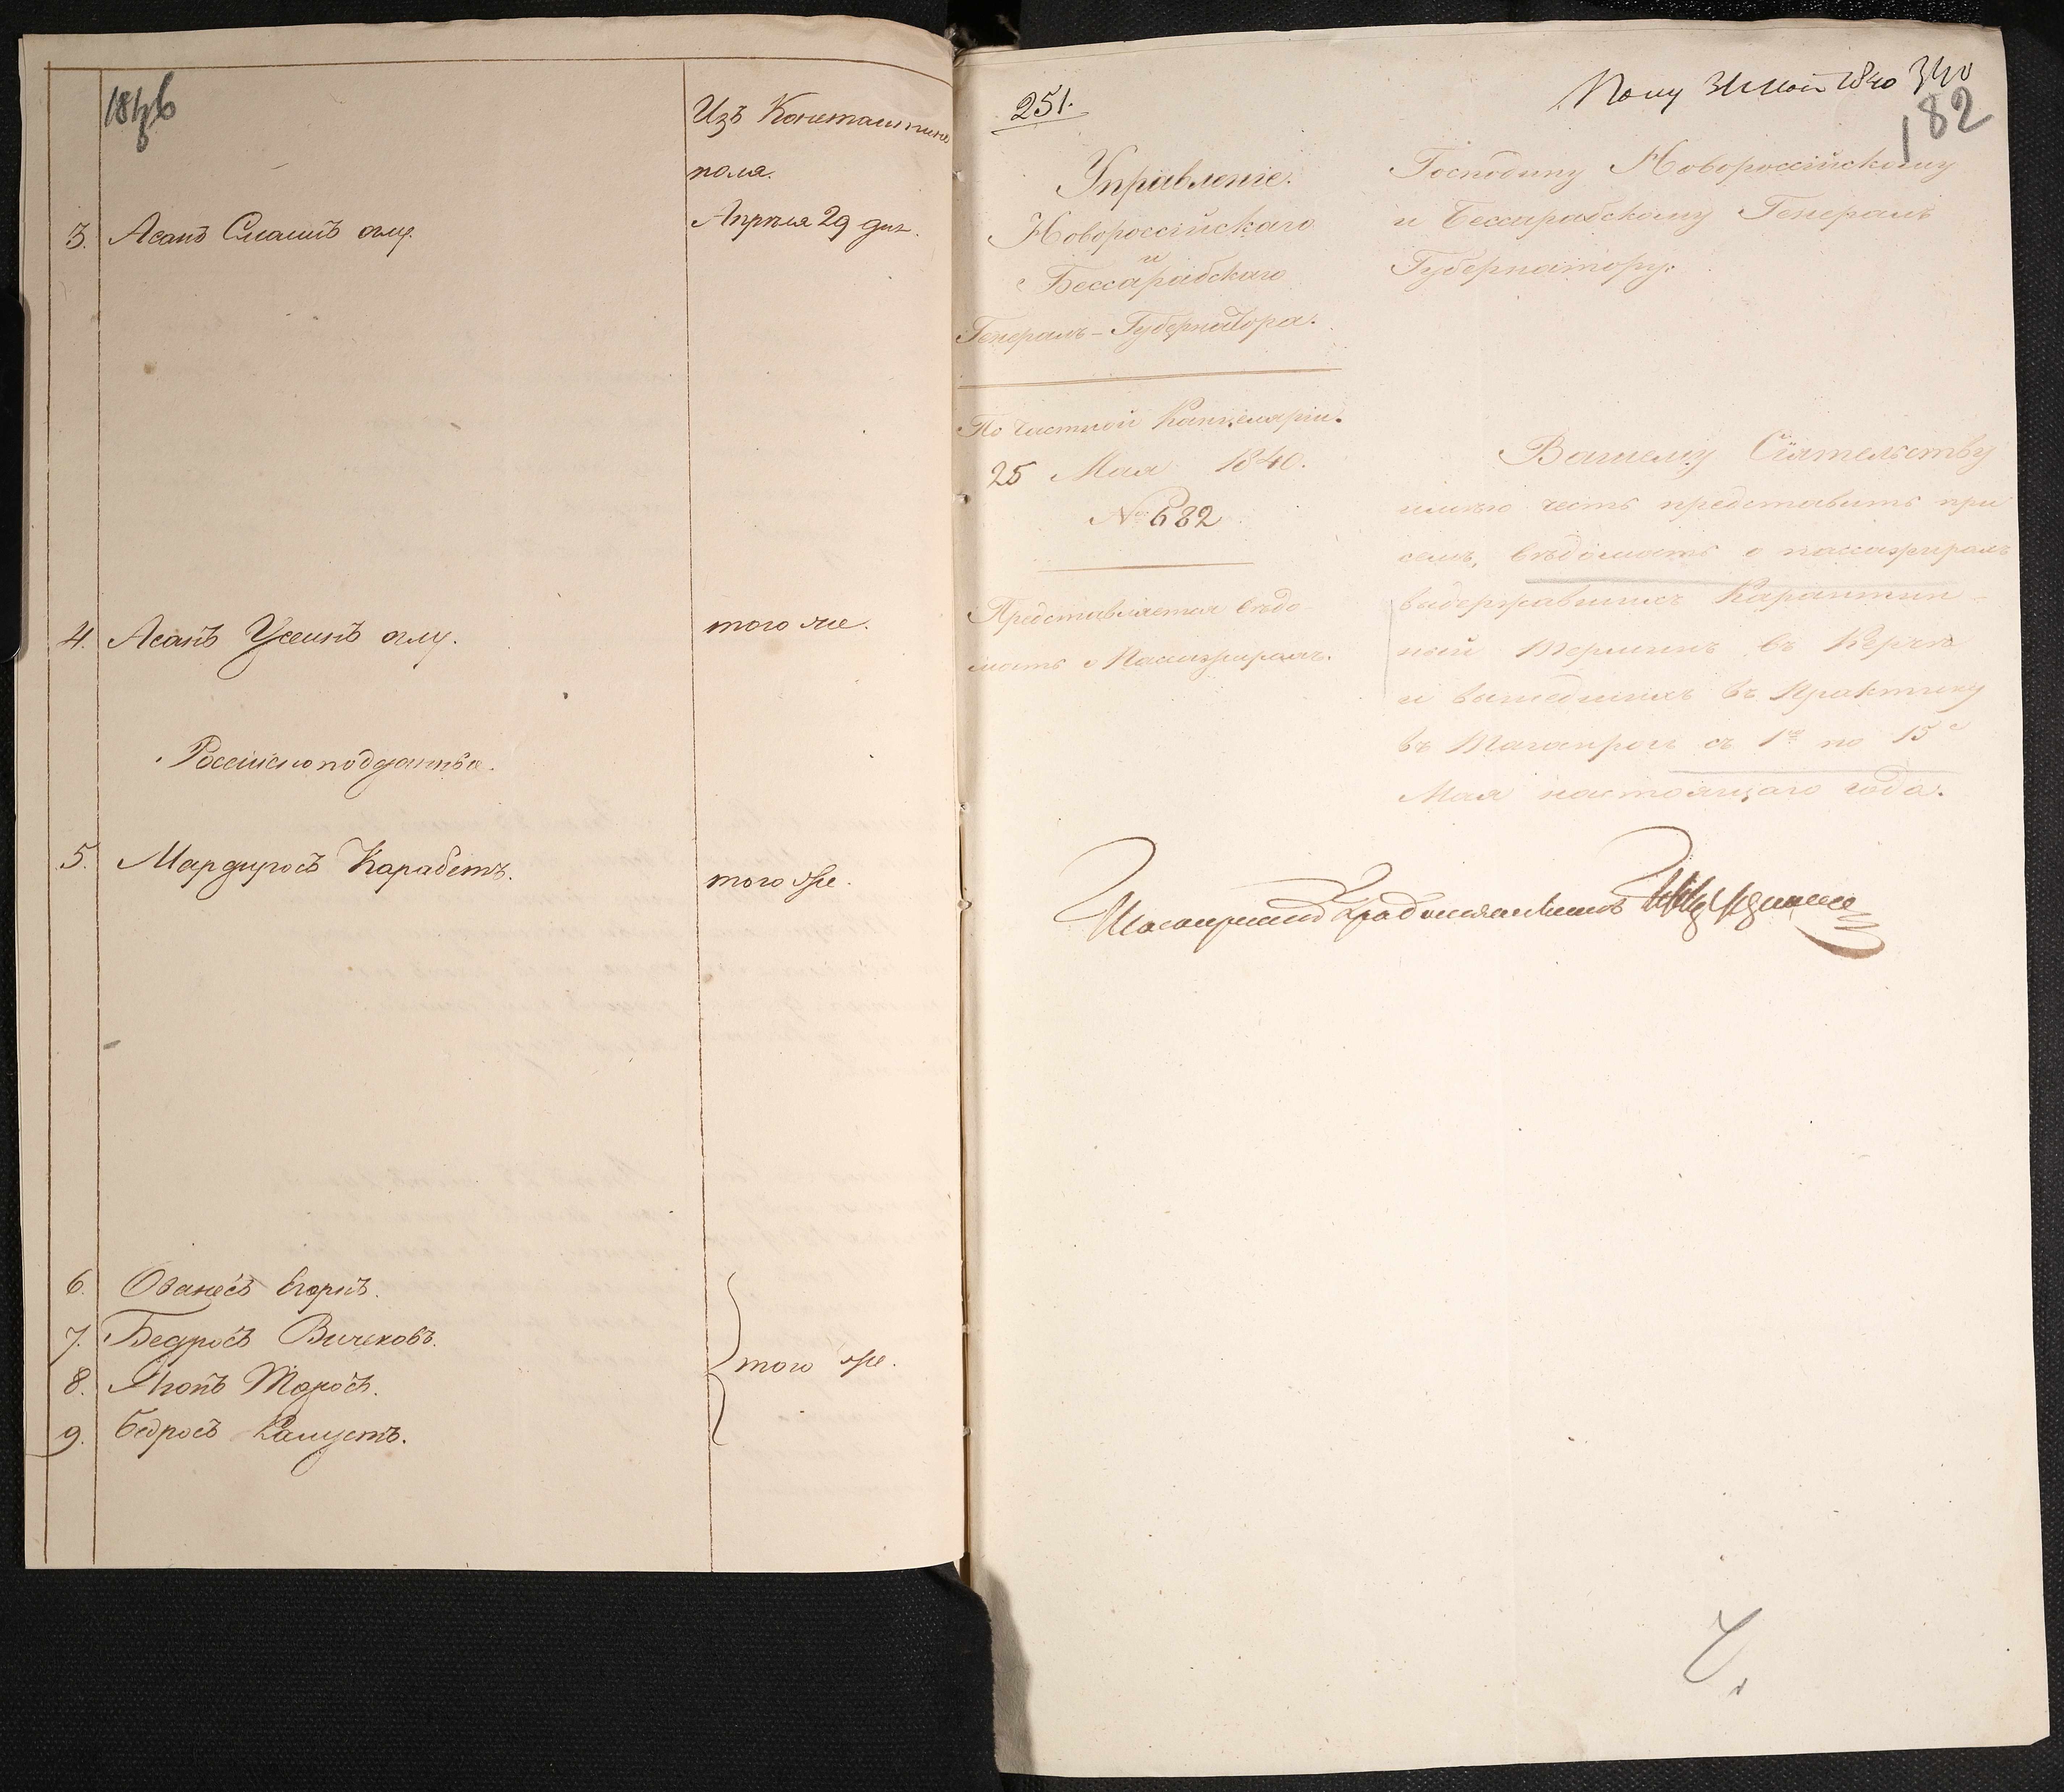 Изъ Константино
поля.
3. Асанъ Смаилъ оглу. Апрѣля 29 дня.
4. Асанъ Усеинъ оглу. того же.
Россійскоподданные.
5. Мардиросъ Карабетъ. того же.
6. Ованесъ Егорпъ.
7. Бедросъ Вичековъ.
того же.
8. Агопъ Торосъ.
9. Бедросъ Калустъ.
251.
Полу 31 Мая 1840
182
Управленіе.
Новороссійскаго
и
Бессарабскаго
Генералъ-Губернатора.
По частной Канцеляріи.
25 Мая 1840.
№ 682
Представляется вѣдо-
мость о Пассажирахъ.
Господину Новороссійскому
и Бессарабскому Генералъ
Губернатору.
Вашему Сіятельству
имѣю честь представить при
семъ, вѣдомость о пассажирахъ
выдержавшихъ Карантин-
ный Терминъ въ Керчѣ
и вышедшихъ въ Практику
въ Таганрогѣ съ 1го по 15е
Мая настоящаго года.
Градоначальникъ